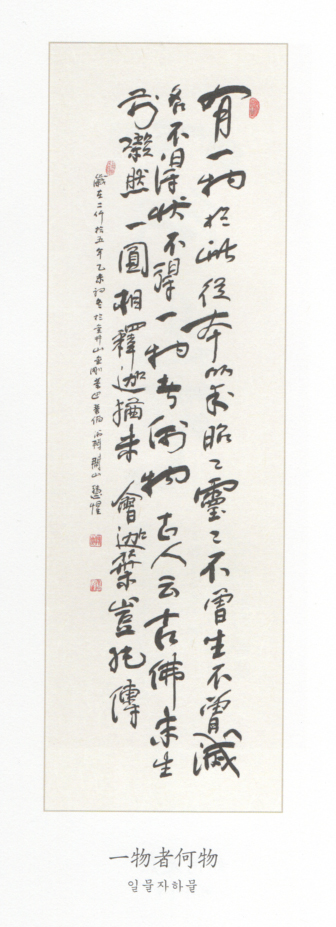 有一物於此從本以來昭〻靈〻不曾生不曾滅
名不得狀不得一物者何物古人云古佛未生
前凝然一圓相釋迦猶未會迦葉豈能傳
歲在二仟拾五年乙未初冬於金井山金剛
一物者何物
일물자하물